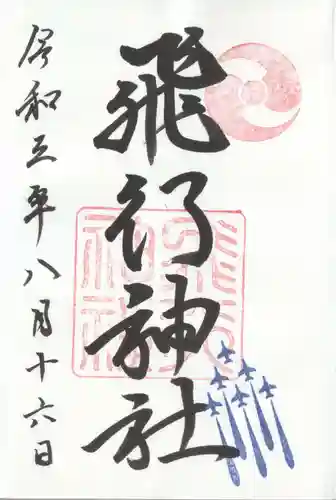 飛行神社
令和三年八月十六日
飛行
神社